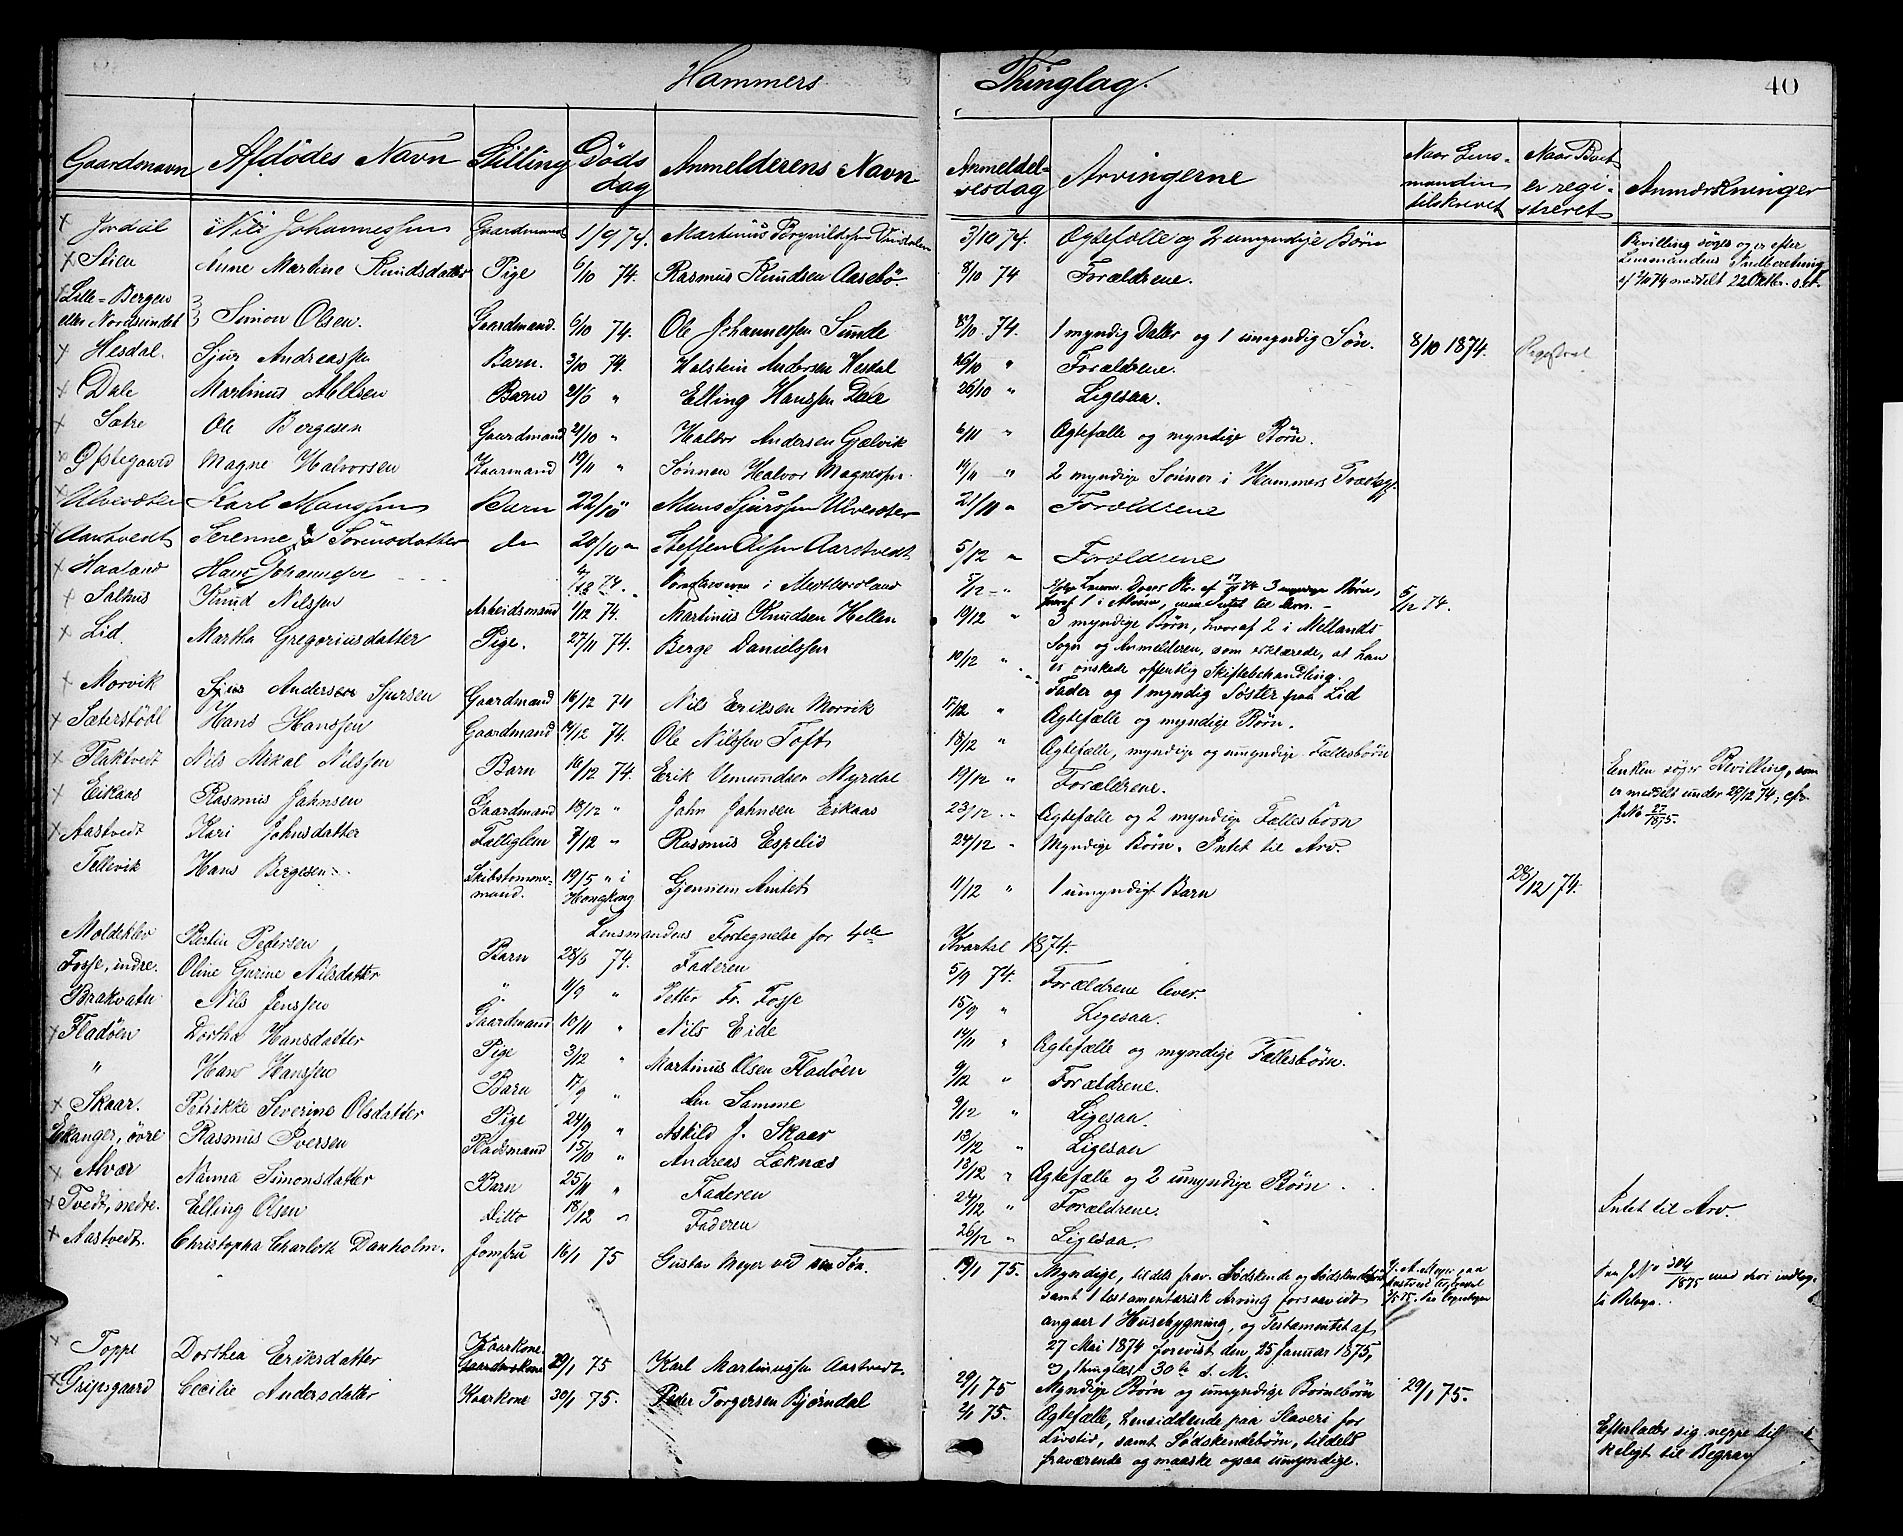 Hammers Thinglag.
40
Gaardsnavn Afdödes Navn Stilling Döds dag Anmelderens Navn Anmeldel- sesdag Arvingerne Naar Lens- manden tilskrevet Naar Boet er regi- streret Anmærkninger
Jordal Nils Johannessen Gaardmand 1/9 74. Martinus 3/10 74. Ægtefælle og 2 umyndige Börn Bevilling söges og er efter Lensmandens Indberetning af 2/10 74 meddelt 22 Oktbr. s.A.
Stien Anne Martine Knudsdatter Pige 6/10 74. Rasmus Knudsen Aasebö 8/10 74 Forældrene.
Lille-Bergen
eller Nordsundet Simon Olsen. Gaardmand. 6/10 74. Ole Johannessen Sunde 8/10. 74. 1 myndig Datter og 1 umyndig Sön. 8/10 1874. Registreret
Hesdal. Sjur Andreassen Barn. 3/10 74. Holstein Andersen Hesdal 26/10 " Forældrene.
Dale Martinus Abelsen Barn 21/6 " Elling Hanssen Dale 26/10 " Ligesaa.
Sætre Ole Bergesen Gaardmand 21/10 " Haldor Andersen Gjelvik 6/11 " Ægtefælle og myndige Börn.
Öfstegaard Magne Halvorsen Kaarmand 19/11 " Sönnen Halvor Magnessen 19/11 " 2 myndige Sönner i Hammers
Ulvesæter Karl Monssen Barn 22/10 " Mons Sjurssen Ulvesæter 21/11 " Forældrene
Aarstvedt Serenne Sörensdatter do 20/10 " Steffen Olsen Aarstvedt 5/12 " Forældrene
Haaland Hans Johannessen 4/12 74. i 5/12 " 3 myndige Börn, hvoraf 1 i Intet til Arv. 5/12 74.
Salhus Knud Nilssen Arbeidsmand 7/12 74. Martinus Knudsen Hellen 19/12 " 3 myndige Börn, hvoraf 2 i Mellands Sogn og Anmelderen, som erklærede, at han ei önskede offentlig Skiftebehandling.
Lid. Martha Gregoriusdatter Pige. 27/11 74. Berge Danielssen 10/12 " Fader og 1 myndig Söster paa Lid
Morvik Sjur Anderssen Sjursen Gaardmand 16/12 74 Nils Eriksen Morvik 17/12 " Ægtefælle og myndige Börn.
Sæterstödl Hans Hanssen Gaardmand 14/12 74. Ole Nilssen Toft 18/12 " Ægtefælle, myndige og umyndige Fællesbörn Enken söger Bevilling, som er meddelt under 29/12 74, cfr. J.No 27/1875.
Flaktvedt Nils Mikal Nilssen Barn 16/12 74. Erik Vemundsen Myrdal 19/12 " Forældrene.
Eikaas Rasmus Johnsen Gaardmand 18/12 " John Johnsen Eikaas 23/12 " Ægtefælle og 2 myndige Fællesbörn
Aastvedt Kari Johnsdatter Fattiglem 7/12 " Rasmus Espelid 24/12 " Myndige Börn. Intet til Arv.
Tellevik Hans Bergesen Skibstömmer- mand. 19/5 " i Hongkong Gjennem Amtet 11/12 " 1 umyndigt Barn 28/12 74.
Lensmandens Fortegnelse for 4de Kvartal 1874.
Moldeklev Bertin Pedersen Barn 28/8 74. Faderen 5/9 74. Forældrene lever.
Fosse, indre. Oline Gurine Nilsdatter " 11/9 " Petter Fr. Fosse 15/9 " Ligesaa.
Brakvatn Nils Jenssen Gaardmand 10/11 " Nils Eide 14/11 " Ægtefælle og myndige Fællesbörn.
Fladöen Dortha Hansdatter Pige 3/12 " Martinus Olsen Fladöen 9/12 " Forældrene.
" Hans Hanssen Barn 17/9 " den Samme 9/12 " Ligesaa.
Skaar. Petrikke Severine Olsdatter Pige 24/9 " Askild J. Skaar 13/12 " Ligesaa
Eikanger, övre Rasmus Iversen Pladsmand 15/10 " Andreas Læknæs 13/12 " Ægtefælle og 2 umyndige Börn.
Alvær Nanna Simonsdatter Barn 25/11 " Faderen 24/12 " Forældrene. Intet til Arv.
Tvedt, nedre. Elling Olsen Ditto 18/12 " Faderen 26/12 " Ligesaa.
Aastvedt. Christopha Charlotte Danholm. Jomfru 16/1 75 Gustav Meyer ved Sön. 19/1 75. Myndige, tildels frav. Södskende og Södskendebörn samt 1 testamentarisk Arving forsaavidt angaar 1 Husebygning, og Testamentet af 27 Mai 1874 forevist den 25 Januar 1875, og thinglæst 30te s. M. J.No 304/1875 med deri indlag- te Bilage.
Toppe Dorthea Eriksdatter Kaarkone. Gaardmandskone 29/1 75 Karl Martinussen Aastvedt. 29/1 75 Myndige Börn og umyndige Börnebörn 29/1 75.
Gripsgaard Cecilie Andersdatter Kaarkone 30/1 75. Peder Torgersen Björndal 2/1 75. Ægtefælle, hensiddende paa Slaveri for Livstid, samt Södskendebörn, tildels fraværende og maaske ogsaa umyndige. Efterlader sig neppe til- keligt til Begrav